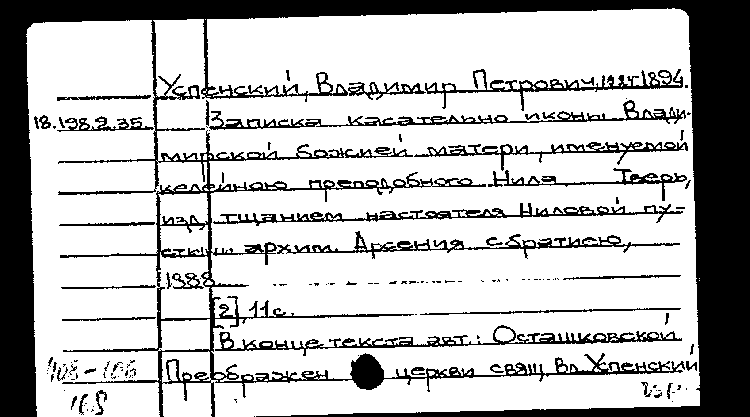 Успенский, Владимир Петрович, 1894.
18.198.2.35 Записка касательно иконы Влади-
мирской божией матери, именуемой
келейною преподобного Нила Тверь,
изд. тщанием настоятеля Ниловой пу-
стыни архим. Арсения с братиею,
1888
[2], 11с.
В конце текста авт.: Осташковской
Преображен церкви свящ. Вл. Успенский
108-106
168